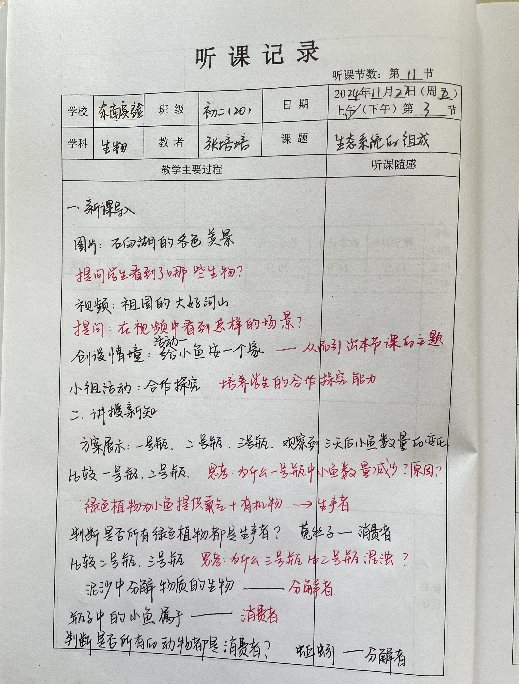 听课记录
听课节数：第 11 节
学校 东南实验 班级 初二(20) 日期 2024年11月2日(周五) 上午/(下午)第3节
学科 生物 教者 张培培 课题 生态系统的组成
教学主要过程 听课随感
一.新课导入
图片：石臼湖的冬色美景
提问学生看到了哪些生物？
视频：祖国的大好河山
提问：在视频中看到怎样的场景？
活动一
创设情境：给小鱼安一个家 —— 从而引出本节课的主题
小组活动：合作探究 培养学生的合作探究能力
二.讲授新知
方案展示：一号瓶、二号瓶、三号瓶，观察到三天后小鱼数量的变化
比较一号瓶，二号瓶， 思考：为什么一号瓶中小鱼数量减少？原因？
绿色植物为小鱼提供氧气+有机物 → 生产者
判断是否所有绿色植物都是生产者？ 菟丝子 — 消费者
比较二号瓶，三号瓶 思考：为什么三号瓶比二号瓶混浊？
泥沙中分解物质的生物 —— 分解者
瓶子中的小鱼属于 —— 消费者
判断是否所有的动物都是消费者？ 蚯蚓 — 分解者